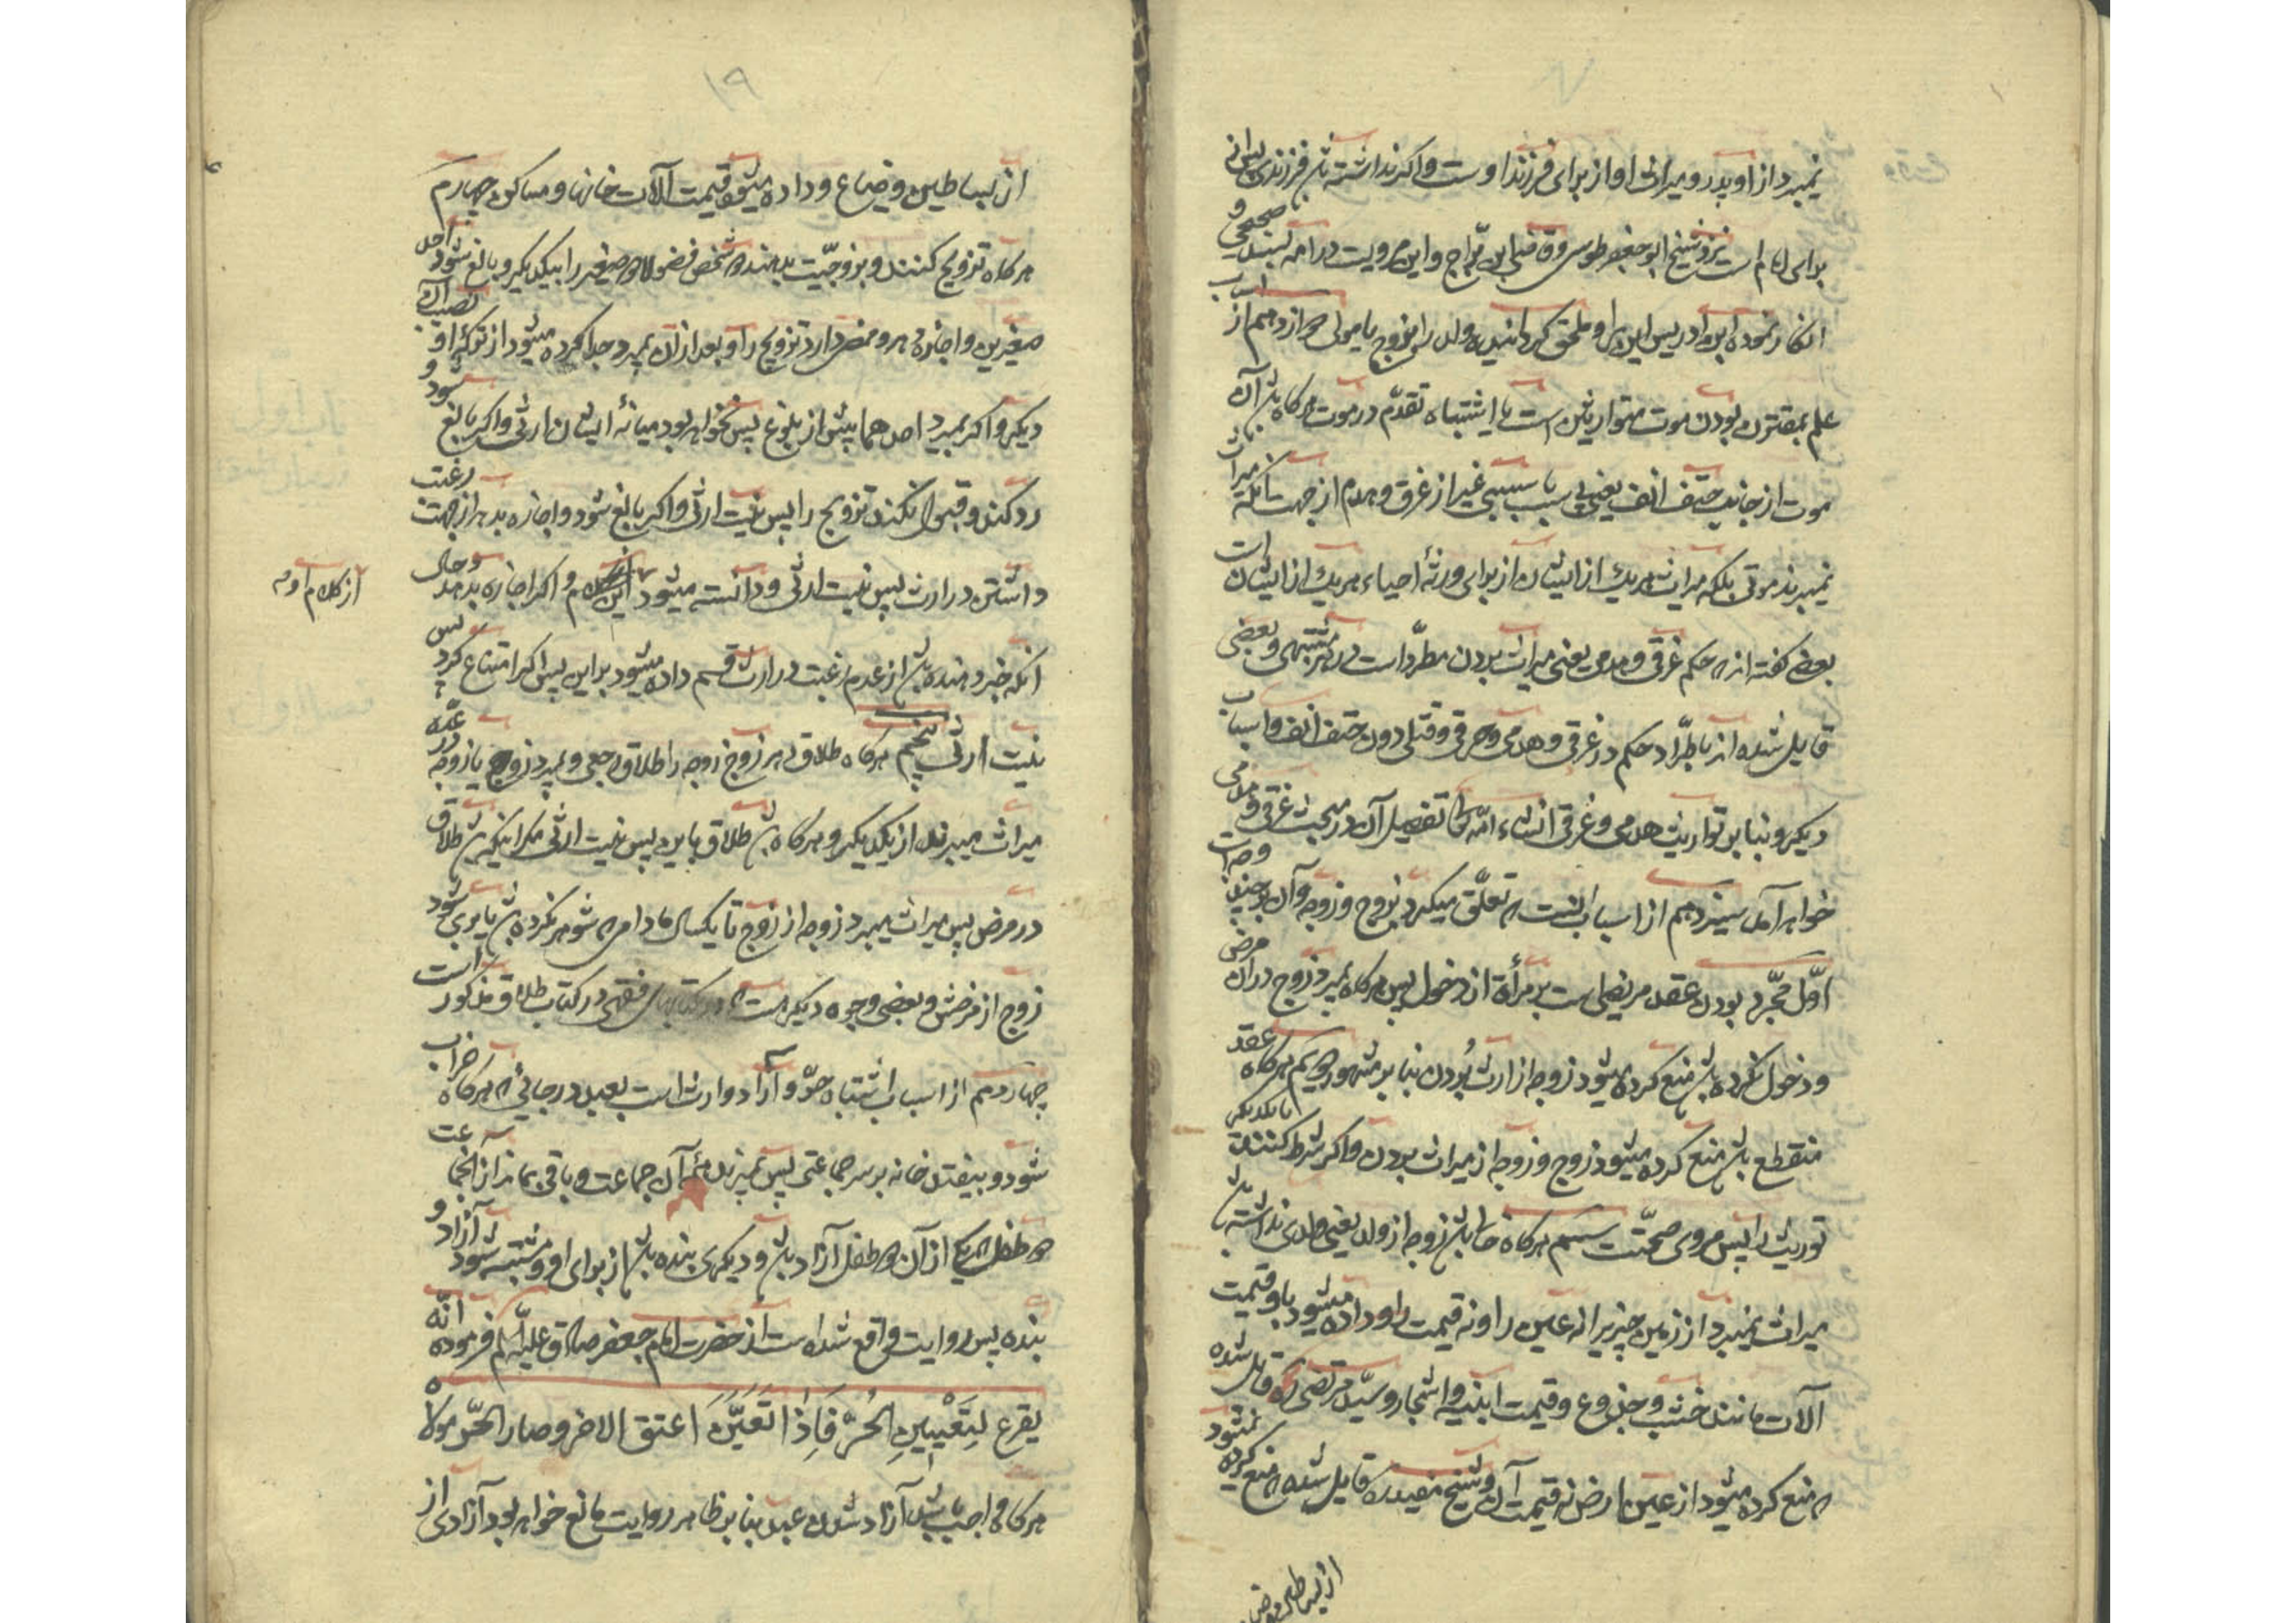 نمیبرد از او پدر و میراث او از برای فرزند اوست و اگر نداشته باشد فرزندی پس
برای امام است نزد شیخ ابو جعفر طوسی و قاضی ابن برّاج و این مرویست در امه بسند صحیحی و
انکار نموده ابن ادریس این را و ملحق گردانیده ولد را بزوج یا مولی دوازدهم از اسباب
علم بمقترن بودن موت متوارثین است یا اشتباه تقدّم در موت هرگاه باشد آن
موت از جانب حتف انف یعنی بی سبب یا سببی غیر از غرق و هدم از جهت آنکه میراث
نمیبرند موتی بلکه میراث هریک از ایشان از برای ورثهٔ احیاء هریک از ایشان است
بعضی گفته اند که حکم غرقی و هدمی یعنی میراث بردن مطّرد است در هر مشتبهی و بعضی
قایل شده اند باطّراد حکم در غرقی و هدمی و حرقی و قتلی دون حتف انف و اسباب
دیگر و بنا بر توارث هدمی و غرقی انشاء الله تفصیل آن در مبحث غرقی و هدمی
خواهد آمد سیزدهم از اسباب آنست که تعلّق میگیرد بزوج و زوجه و آن بر چند وجه است
اوّل مجرّد بودن عقد مریض است بر مرأة از دخول پس هرگاه بمیرد زوج در آن مرض
و دخول نکرده باشد منع کرده میشود زوجه از ارث بردن بنا بر مشهور دویم هرگاه عقد
منقطع باشد منع کرده میشود زوج و زوجه از میراث بردن و اگر شرط کنند با یکدیگر
توریث را پس مروی صحّت است سیم هرگاه خالی باشد زوجه از ولد یعنی ولدی نداشته باشد
میراث نمیبرد از زمین چیزیرا نه عین را و نه قیمت را و داده میشود باو قیمت
آلات مانند خشب و جذوع و قیمت ابنیه و اشجار و سیّد مرتضی ره قائل شده
که منع کرده میشود از عین ارض نه قیمت آن و شیخ مفید ره قایل شده که منع کرده نمیشود
از بساطین و ضیاع
۱۹
از بساطین و ضیاع و داده میشود قیمت آلات خانها و مساکن چهارم
هرگاه تزویج کنند و بزوجیّت بدهند دو شخص فضولا دو صغیر را بیکدیگر و بالغ شود احد
صغیرین و اجازه دهد و ممضی دارد تزویج را و بعد از آن بمیرد جدا کرده میشود از ترکهٔ او نصیب آن
دیگر و اگر بمیرد احدهما پیش از بلوغ پس نخواهد بود میانهٔ ایشان ارثی و اگر بالغ شود و
رد کند و قبول نکند تزویج را پس نیست ارثی و اگر بالغ شود و اجازه بدهد از جهت رغبت
داشتن در ارث پس نیست ارثی و دانسته میشود این و اگر اجازه بدهد و حال
از کلام او که
آنکه خبر دهنده باشد از عدم رغبت در ارث قسم داده میشود بر این پس اگر امتناع کرد پس
نیست ارثی پنجم هرگاه طلاق دهد زوج زوجه را طلاق رجعی و بمیرد زوج یا زوجه در عدّه
میراث میبرند از یکدیگر و هرگاه باشد طلاق باین پس نیست ارثی مگر اینکه باشد طلاق
در مرض پس میراث میبرد زوجه از زوج تا یکسال مادامی که شوهر نکرده باشد یا بری شود
زوج از مرضش و بعضی وجوه دیگر هست که در کتابهای فقهی در کتاب طلاق مذکور است
چهاردهم از اسباب اشتباه حرّ و آزاد وارث است بعبد در جائی که هرگاه خراب
شود و بیفتد خانه بر سر جماعتی پس بمیرند همهٔ آن جماعت و باقی بماند از آنجماعت
دو طفل که یکی از آن دو طفل آزاد باشد و دیگری بنده باشد از برای او و مشتبه شود آزاد و
بنده پس روایت واقع شده است از حضرت امام جعفر صادق علیه السلم فرموده انّه
یقرع لِتَعْیینِ الحُرّ فَاِذٰا تَعَیَّنَ اعتق الاخر و صار الحرّ مولاه
هرگاه واجب باشد آزاد شدن عبد بنا بر ظاهر روایت مانع خواهد بود آزادی از